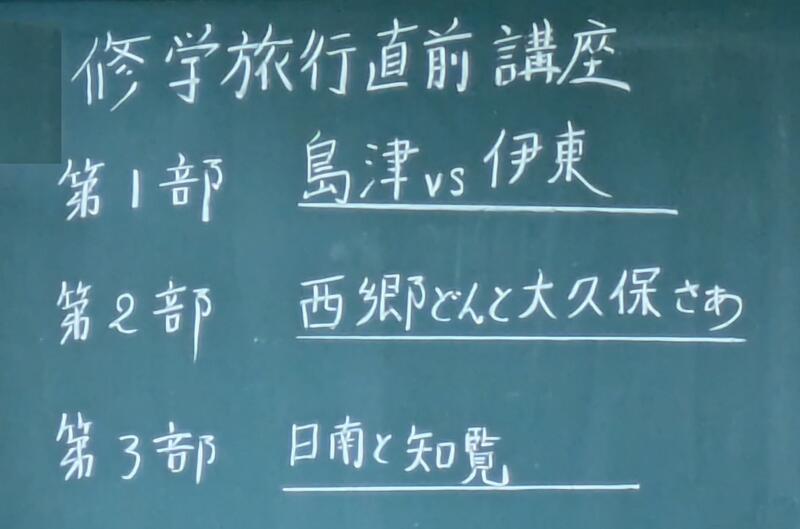 修学旅行直前講座
第1部 島津vs伊東
第2部 西郷どんと大久保さあ
第3部 日南と知覧